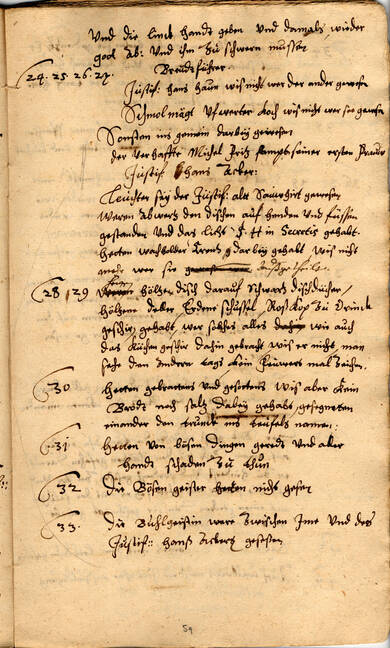 Und die linck handt geben und damals wieder
gott ab: und ihm zu schweren mussen
24. 25. 26. 27. Breutführer
Justif: hans haun wis nicht wer der ander gewesen
wis nicht wer sie gewesen
Sonsten ins gemein darbey gewesen
der verhaffte Michel sampt seiner ersten frauw
Justif hans Acker:
Leuchter sey der Justif: alt Sauwhirt gewesen
weren abwerts den dischen auf henden und füssen
gestanden und das licht in Secretis gehabt.
hetten wachholder darbey gehabt wis nicht
mehr wer sie
28 29 hölzen disch darauf schwartz dischdücher,
hölzene deller Erdene schüssel, Roß Kop zu drinck
geschir gehabt, wer solches alles wie auch
das Kuchen geschir dahin gebracht wis er nicht, man
sehe den andern tags kein feuwers mal zeichen.
30 hetten gebratens und gesottens wis aber kein
Brodt noch saltz dabey gehabt, gesegneten
einander den trunck ins teufels namen:
31 hetten von bösen dingen geredt und aber
handt schaden zu thun
32 die Bösen geister hetten nicht gesen
33. die Buhlgeistin were zwischen Ime und des
Justif:: hanß Ackers gesessen
59